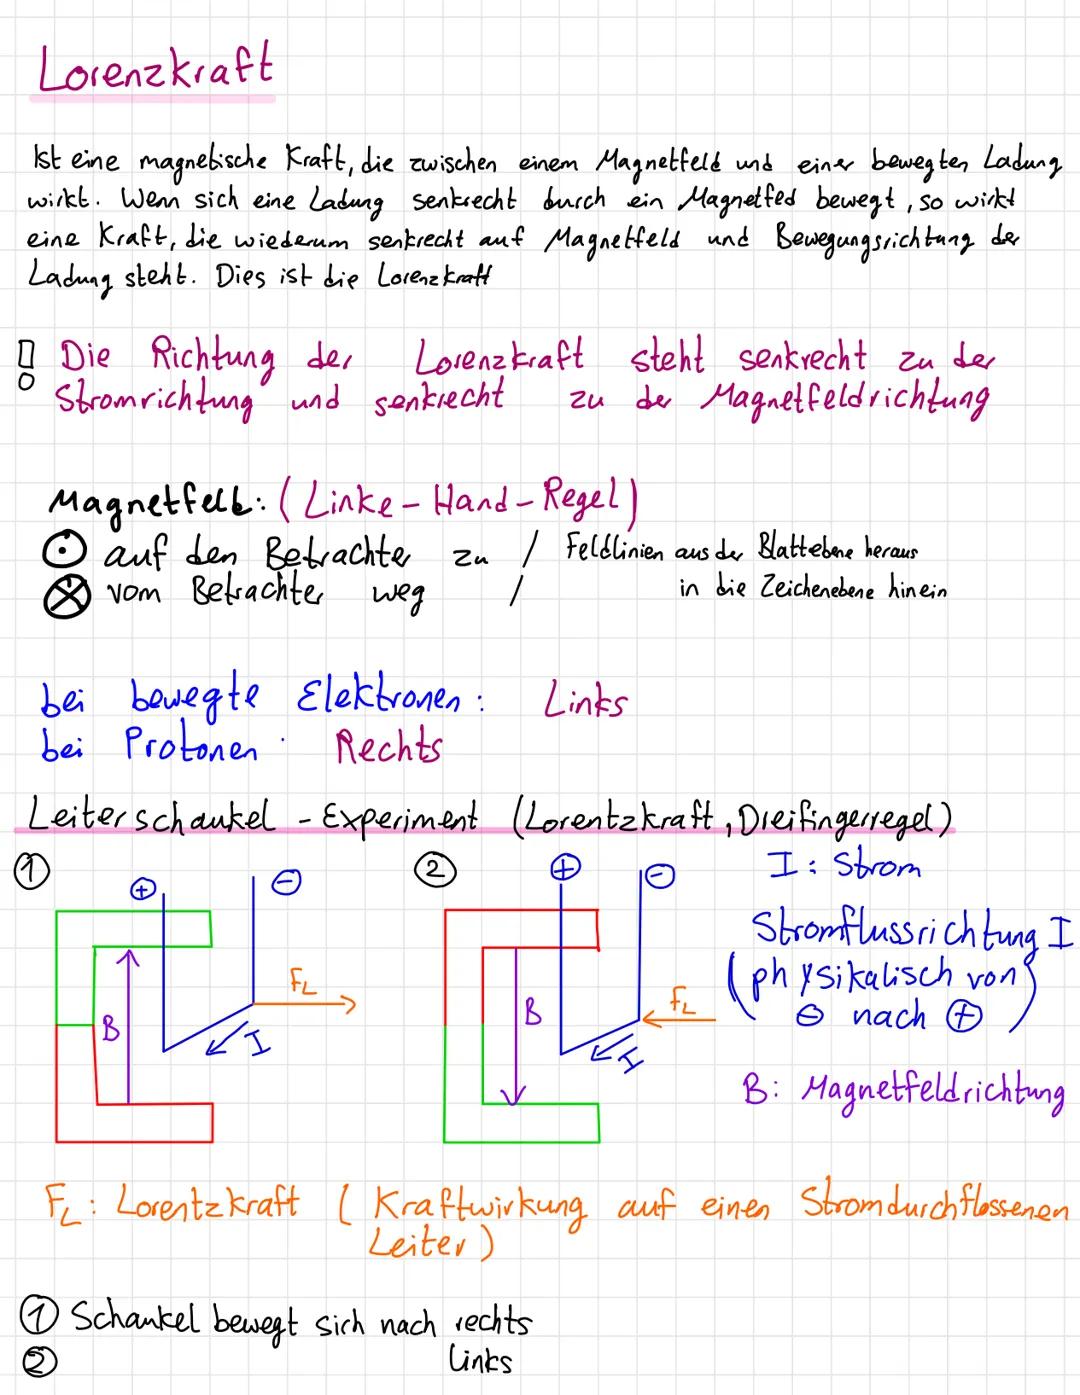 Lorenzkraft
Ist eine magnetische Kraft, die zwischen einem Magnetfeld und einer bewegten Ladung
wirkt. Wenn sich eine Ladung senkrecht durch ein Magnetfed bewegt, so wirkt
eine Kraft, die wiederum senkrecht auf Magnetfeld und Bewegungsrichtung der
Ladung steht. Dies ist die Lorenzkraft
! Die Richtung der Lorenzkraft steht senkrecht zu der
Stromrichtung und senkrecht zu der Magnetfeldrichtung
Magnetfelb: (Linke-Hand-Regel)
⊙ auf den Betrachter zu / Feldlinien aus der Blattebene heraus
⊗ vom Betrachter weg / in die Zeichenebene hinein
bei bewegte Elektronen: Links
bei Protonen: Rechts
Leiterschaukel - Experiment (Lorentzkraft, Dreifingerregel)
① ⊕ ⊖
B I FL
② ⊕ ⊖
B I FL
I: Strom
Stromflussrichtung I
(physikalisch von
⊖ nach ⊕)
B: Magnetfeldrichtung
FL: Lorentzkraft (Kraftwirkung auf einen Stromdurchflossenen
Leiter)
① Schaukel bewegt sich nach rechts
② links